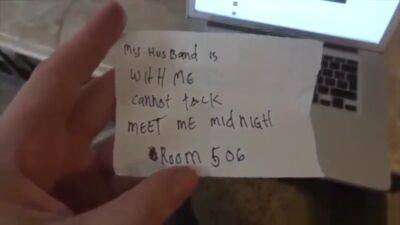 My HusBand is
WitH ME
cannot tack
MEET ME midNigtl
Room 506